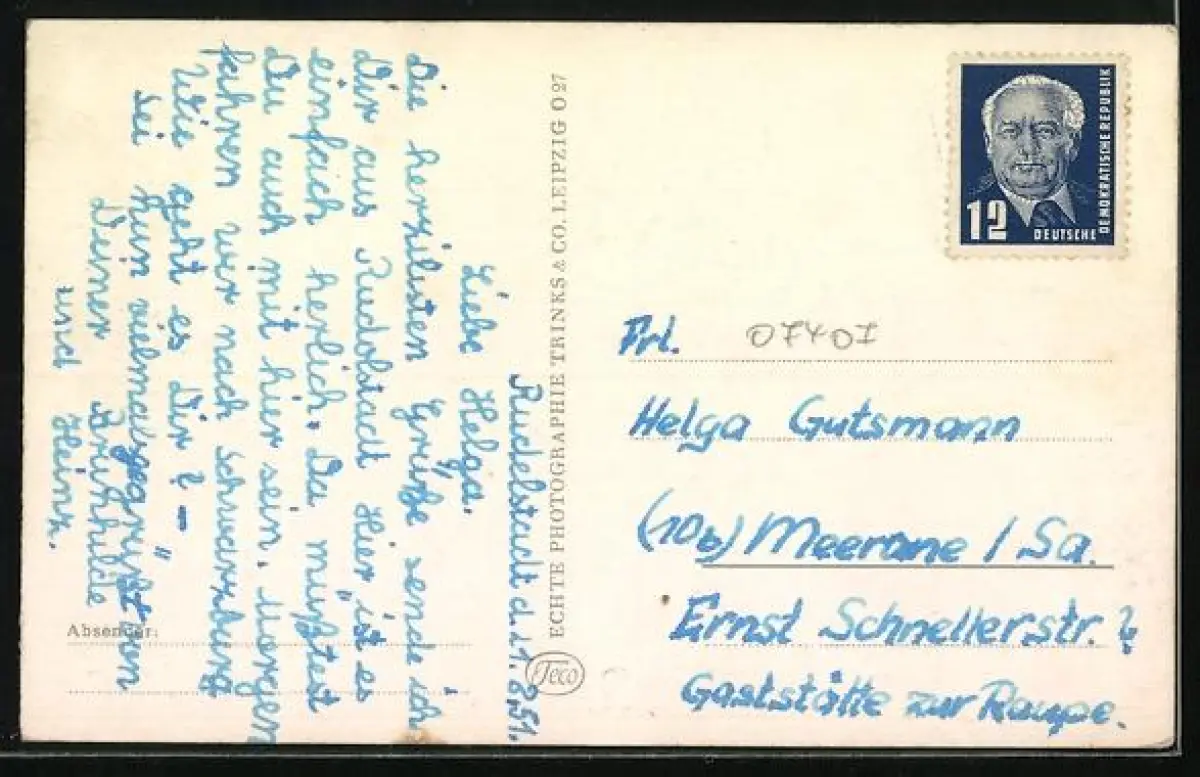 Rudelstadt d. 1. 8. 51.
Liebe Helga.
Die herzlisten Grüße sende ich
Dir aus Rudolstadt Hier ist es
einfach herlich. Da müßtest
Du auch mit hier sein. Morgen
fahren wir nach Schwarzburg
Wie geht es Dir? –
Sei nun vielmals gegrüßt von
Deiner Brunhilde
und Heinz.
Absender:
ECHTE PHOTOGRAPHIE TRINKS & CO. LEIPZIG O 27
Teco
12
DEUTSCHE
DEMOKRATISCHE REPUBLIK
Frl. 07407
Helga Gutsmann
(10b) Meerane / Sa.
Ernst Schnellerstr. 2
Gaststätte zur Raupe.